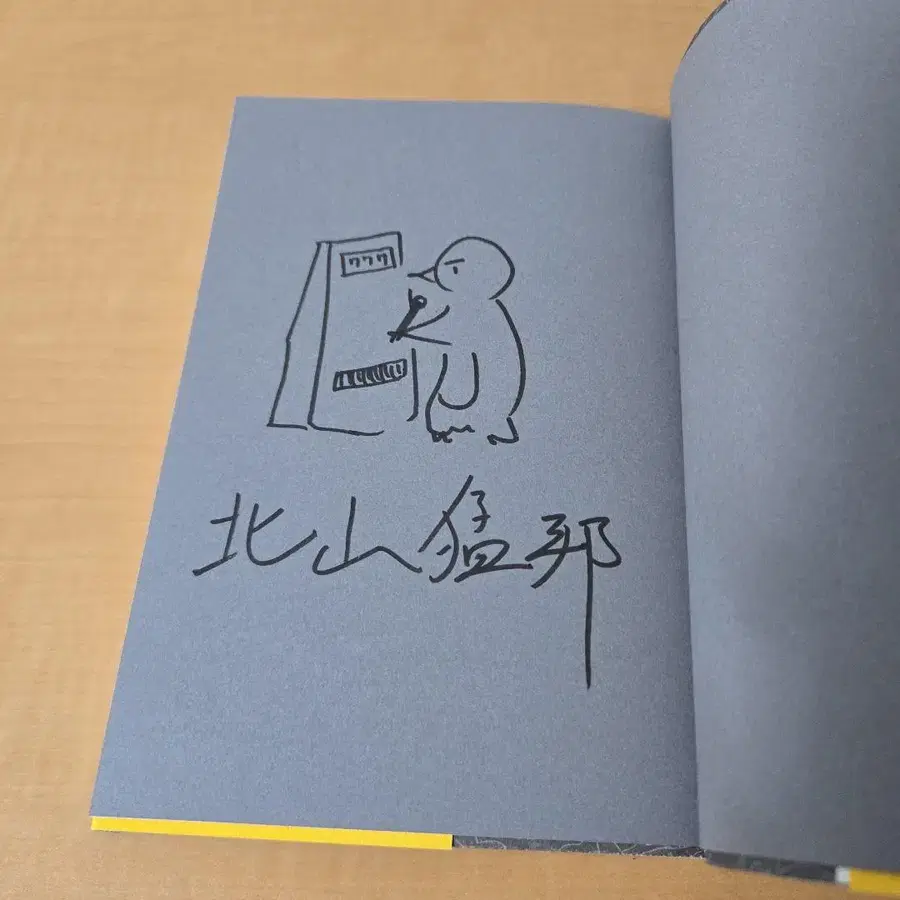 777
北山猛邦